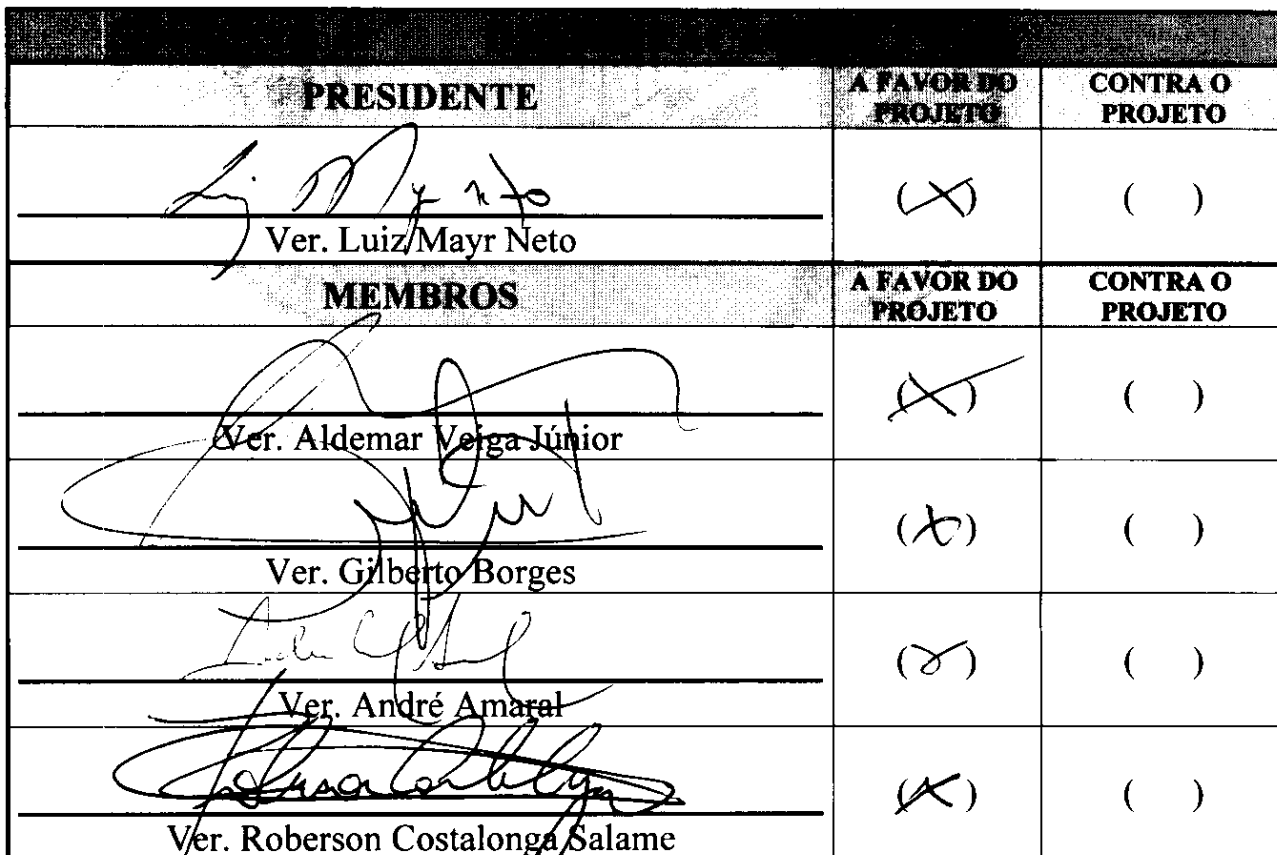 PRESIDENTE
A FAVOR DO PROJETO
CONTRA O PROJETO
Luiz Mayr Neto
(X)
( )
Ver. Luiz Mayr Neto
MEMBROS
A FAVOR DO PROJETO
CONTRA O PROJETO
(X)
( )
Ver. Aldemar Veiga Júnior
(X)
( )
Ver. Gilberto Borges
(X)
( )
Ver. André Amaral
(X)
( )
Ver. Roberson Costalonga Salame